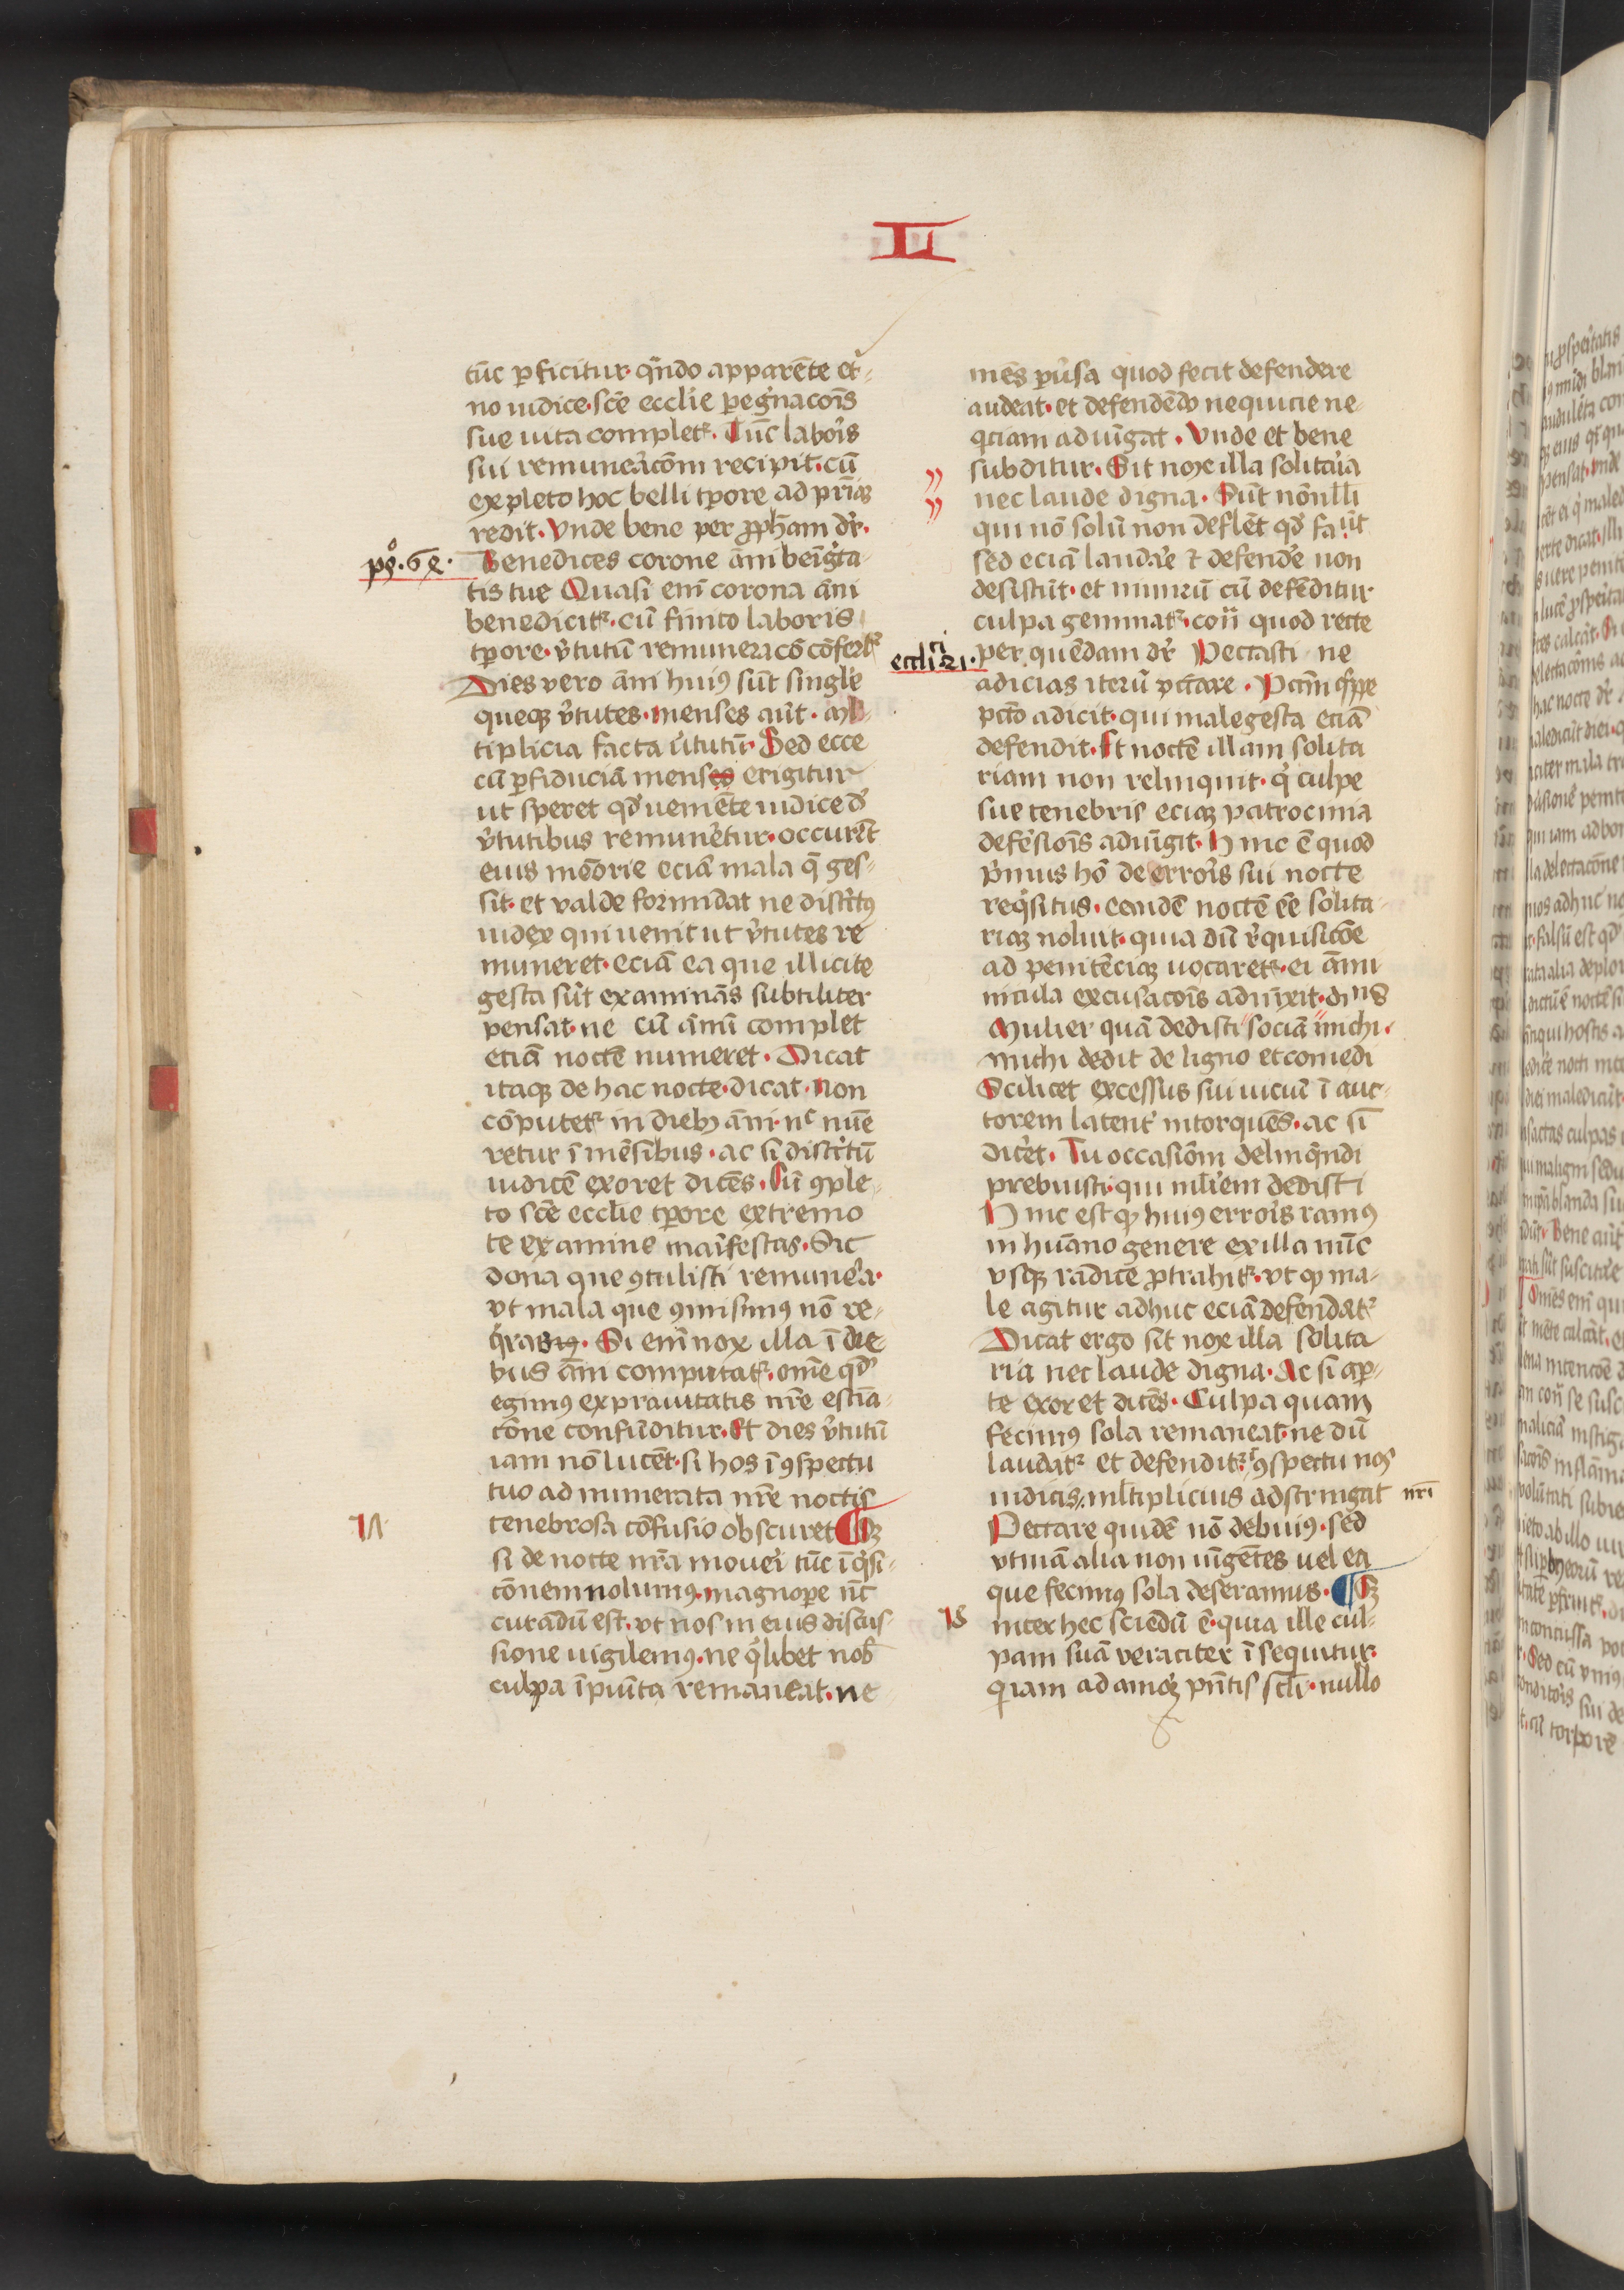 LI
tūc ꝑficitur· qn̄do apparēte et̾-
no iudice· scē eccl̾ie ꝑeg̾nacōis
sue uita complet᷑. Tūc labor̾s
sui remunerac̄om recipit· cū
expleto hoc belli tp̄ore ad pr̄iaꝫ
redit· Vnde bene per ꝓph̄am dr̄·
pš. 64.
Benedices corone ām benig̾ta-
tis tue Quasi enī corona āni
benedicit᷑· cū finito laboris
tp̄ore· v̾tutū remuneracō cōfert᷑
Dies vero āni huiꝰ sūt single
queqꝫ v̾tutes· menses aūt· ml̾-
tiplicia facta v̾tutū· Sed ecce
cū ꝑ fiduciā menses erigitur
ut speret qd̾ ueniēte iudice d̾
v̾tutibus remun̾etur· occurēt
eius mēorie eciā mala q̄ ges-
sit· et valde formidat ne distr̾tꝰ
iudex qui uenit ut v̾tutes re
muneret· eciā ea que illicite
gesta sūt examinās subtiliter
pensat· ne cū annū complet
etiā noctē numeret· Dicat
itaqꝫ de hac nocte· dicat· Non
cōputet᷑ in diebꝫ āni· nc̄ nūe
retur ī mēsibus· ac si distr̾tū
iudicē exoret dicēs· Cū ꝯple-
to scē ecclie tp̄ore extremo
te examine manifestas· Sic
dona que ꝯtulisti remun̾a·
vt mala que ꝯmisimꝰ nō re-
q̾rasmꝰ· Si enī nox illa ī die-
bus āni computat᷑· om̄e qd̾
egimꝰ ex prauitatis nr̄e estiā-
cōne confūditur· Et dies v̾tutū
iam nō lucēt· si hos ī ꝯspectu
tuo ad numerata nr̄e noctis
17
tenebrosa cōfusio obscuret ¶ Sꝫ
si de nocte nr̄a moueri tūc īq̾si-
cōnem nolumꝰ· magnope nūc
curādū est· vt nos in eius discus-
sione uigilemꝰ· ne q̾libet nob̾
culpa īpunita remaneat· ne
mēs pu̾sa quod fecit defendere
audeat· et defendēdo nequicie ne-
qciam adiūgat· Vnde et bene
subditur· Sit nox illa solita̾ia
nec laude digna· Sūt nōnlli
qui nō solū non deflēt qd̾ faciūt
sed eciā laudār̾e ⁊ defend̾e non
desistūt· et nimirū cū defēditur
culpa geminat᷑· con̾ quod recte
eccli 21.
per quēdam dr̄ Peccasti ne
adicias iterū pctare· Pctm̄ qppe
pctō adicit· qui male gesta eciā
defendit· Et noctē illam solita
riam non relinquit· q̾ culpe
sue tenebris eciaꝫ patrocinia
defēsionis adiūgit· Hinc ē quod
p̾mus hō de error̾s sui nocte
req̾situs· eamdē noctē eē solita-
riaꝫ noluit· quia dū r̾quisicōe
ad penitēciaꝫ uocaret᷑· ei ānni
nicula excusacōis adiūxit· dices
Mulier quā dedisti sociā michi·
michi dedit de ligno et comedi
Scilicet excessus sui uiciū ī auc-
torem latent̾ intorquēs· ac si
dic̾et· Tu occasiōm delinq̄ndi
prebuisti· qui ml̾iem dedisti
Hinc est qꝫ huiꝰ error̾s ramꝰ
in hūano genere ex illa nūc
vsqꝫ radice ꝓtrahit᷑· vt qꝫ ma-
le agitur adhuc eciā defendat᷑
Dicat ergo sit nox illa solita
ria nec laude digna· Ac si aꝑ-
te exoret dicēs· Culpa quam
fecimꝰ sola remaneat· ne dū
laudat᷑ et defendit᷑· ī ꝯspectu nos
iudicis· ml̾tiplicius adstringat nr̄i
Peccare quidē nō debuimꝰ· sed
vtinā alia non iūgētes uel ea
que fecimꝰ sola deseramus· ¶ Sꝫ
18
inter hec sciēdū ē· quia ille cul-
pam suā veraciter īsequitur·
qui iam ad amoꝫ pn̄tis scli· nullo